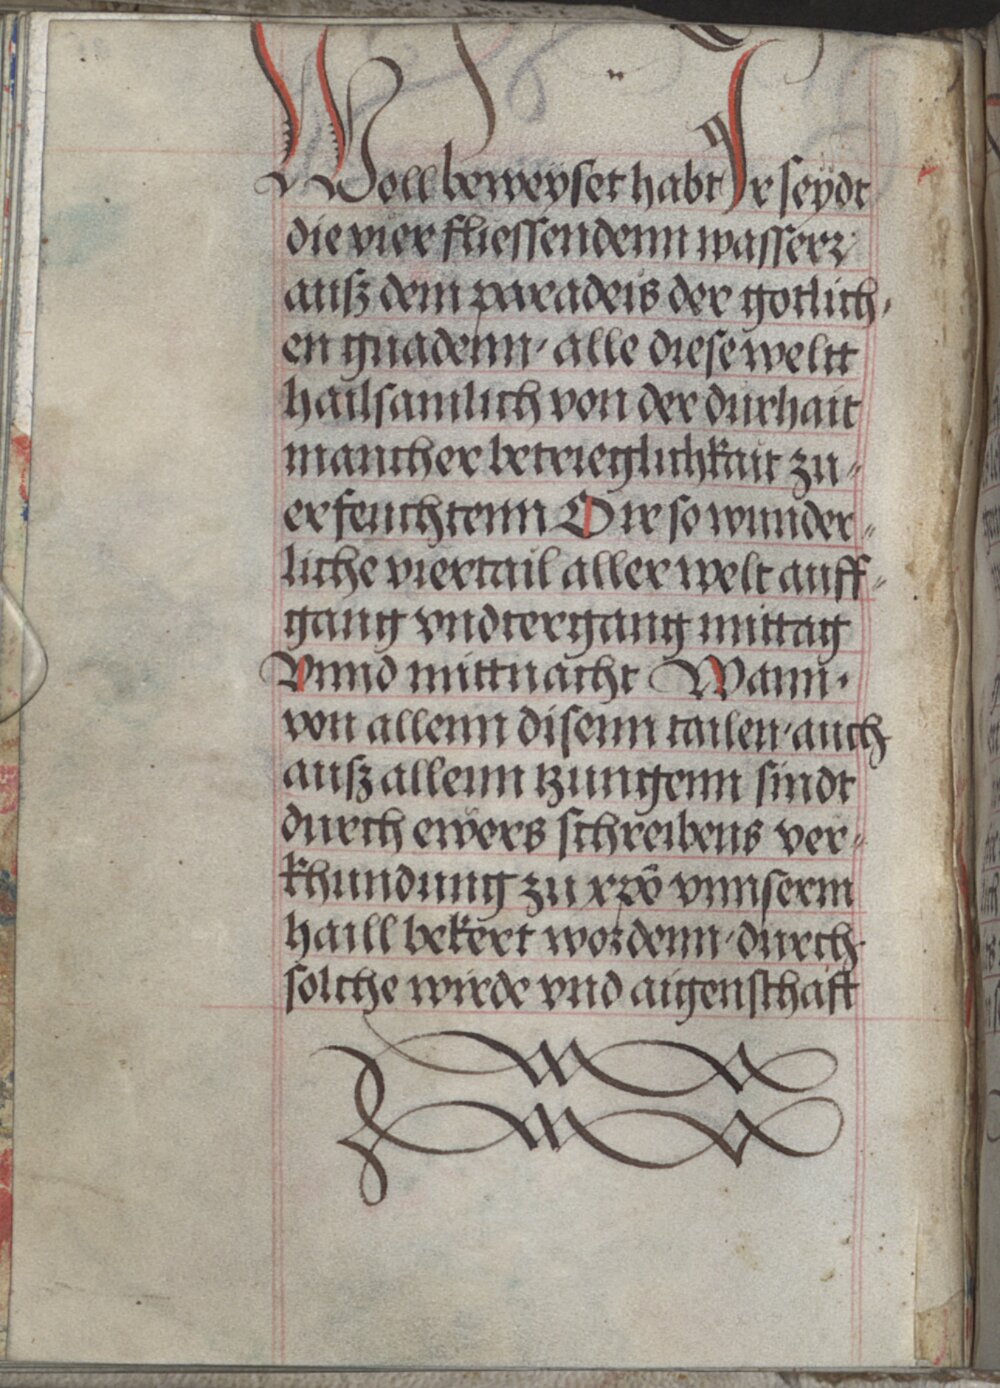 Woll beweyset habt Ir seydt
die vier fliessendenn wasserr
ausz dem paradeis der gotlich-
en gnadenn· alle diese weltt
hailsamlich von der durhait
mancher betrieglichkait zu-
erfeuchtenn O ir so wunder-
liche viertail aller welt auff-
gang vndtergang mittag
Vnnd mittnacht Wann·
von allenn disenn tailen· auch
ausz allenn tzungenn sindt
durch ewers schreibens ver-
khundung zu xpō vnnserm
haill bekert wordenn· durch
solche wirde vnd aigenschafft